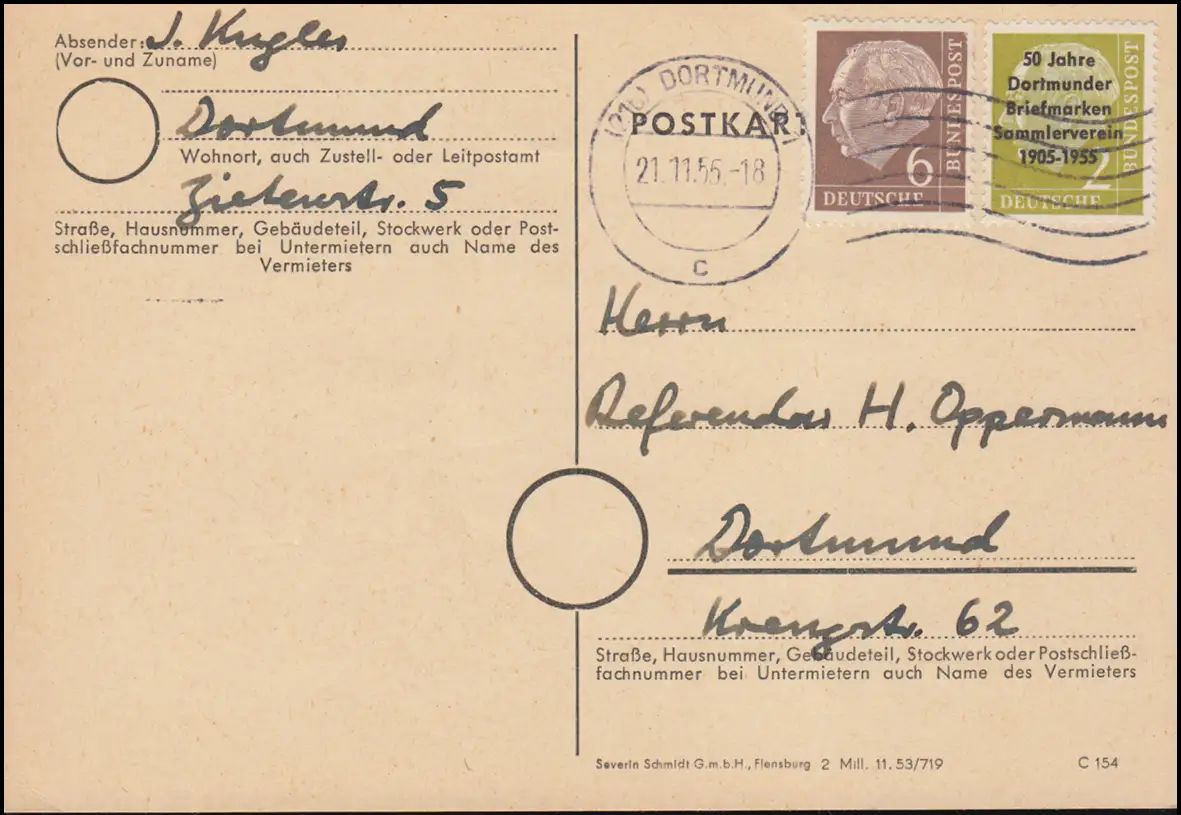 Absender: J. Kugler
(Vor- und Zuname)
Dortmund
Wohnort, auch Zustell- oder Leitpostamt
Zietenstr. 5
Straße, Hausnummer, Gebäudeteil, Stockwerk oder Post-
schließfachnummer bei Untermietern auch Name des
Vermieters
(21b) DORTMUND 1
21.11.55.-18
c
POSTKART
6
BUNDESPOST
DEUTSCHE
50 Jahre
Dortmunder
Briefmarken
Sammlerverein
1905-1955
2
BUNDESPOST
DEUTSCHE
Herrn
Referendar H. Oppermann
Dortmund
Str. 62
Straße, Hausnummer, Gebäudeteil, Stockwerk oder Postschließ-
fachnummer bei Untermietern auch Name des Vermieters
Severin Schmidt G.m.b.H., Flensburg 2 Mill. 11.53/719
C 154